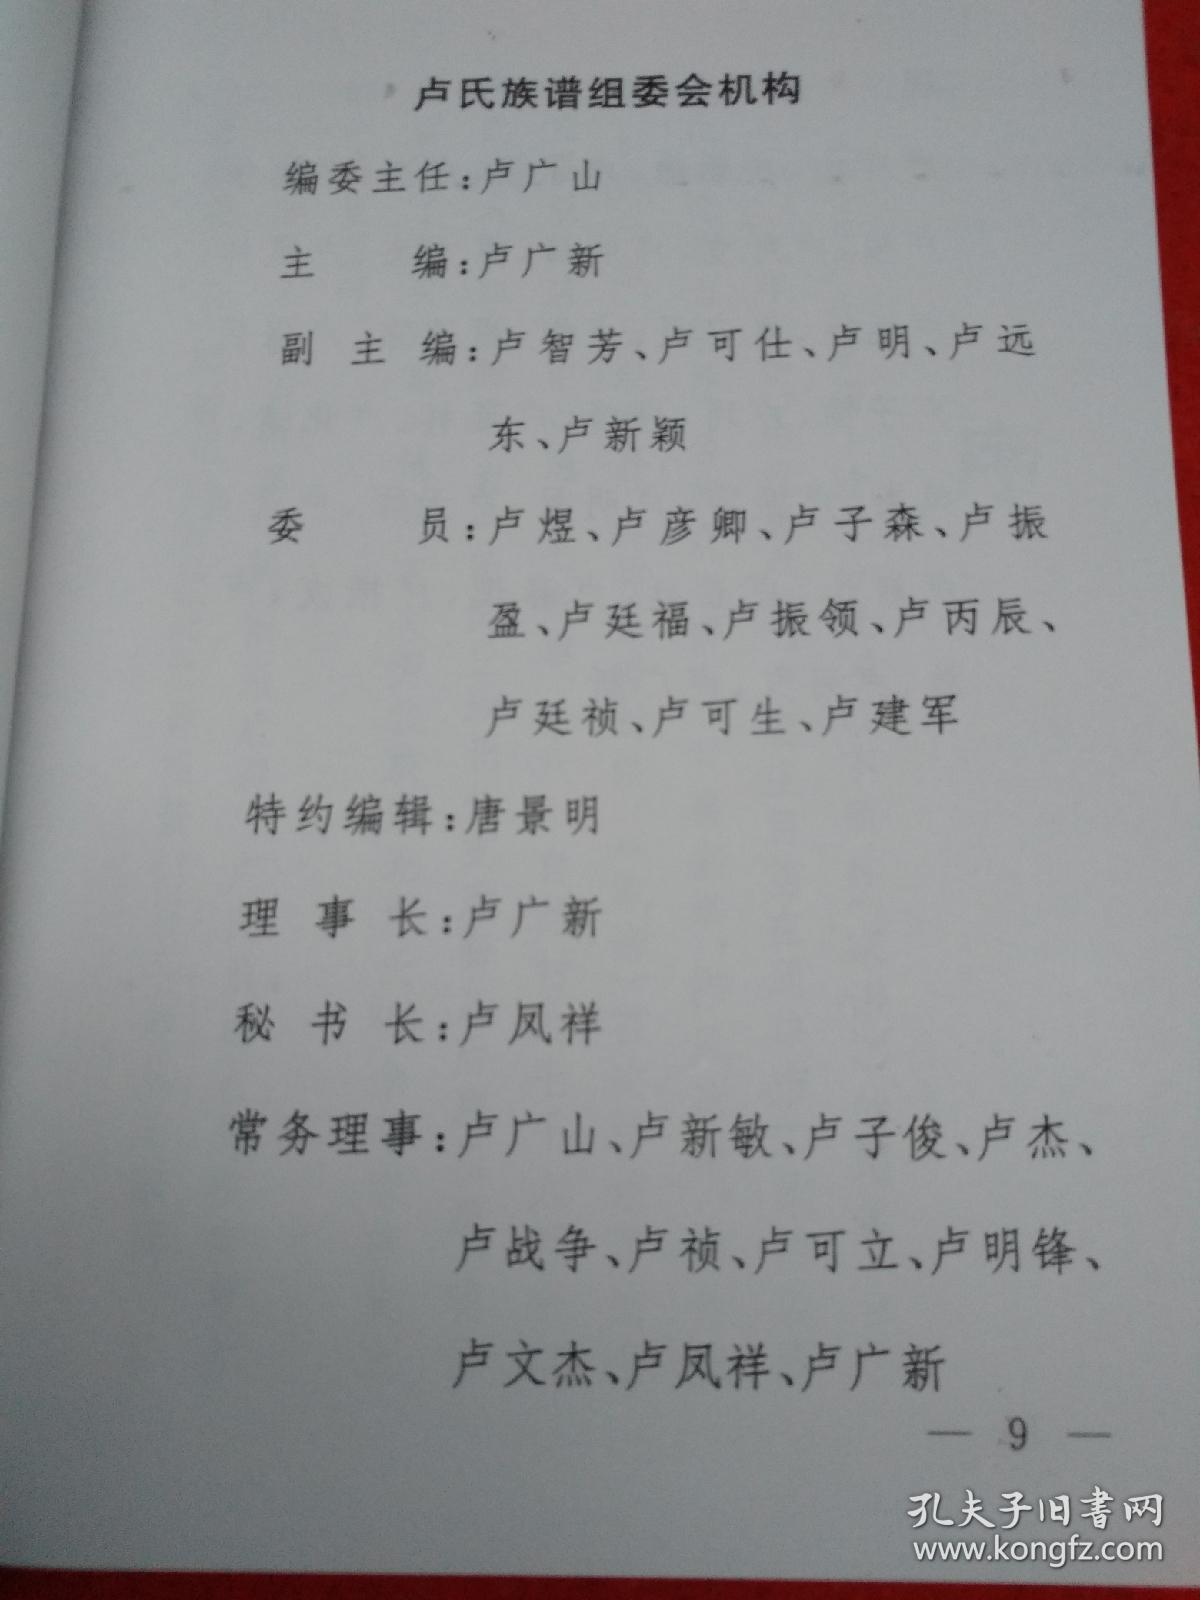 卢氏族谱组委会机构
编委主任:卢广山
主 编:卢广新
副 主 编:卢智芳、卢可仕、卢明、卢远
东、卢新颖
委 员:卢煜、卢彦卿、卢子森、卢振
盈、卢廷福、卢振领、卢丙辰、
卢廷祯、卢可生、卢建军
特约编辑:唐景明
理 事 长:卢广新
秘 书 长:卢凤祥
常务理事:卢广山、卢新敏、卢子俊、卢杰、
卢战争、卢祯、卢可立、卢明锋、
卢文杰、卢凤祥、卢广新
— 9 —
孔夫子旧书网
www.kongfz.com